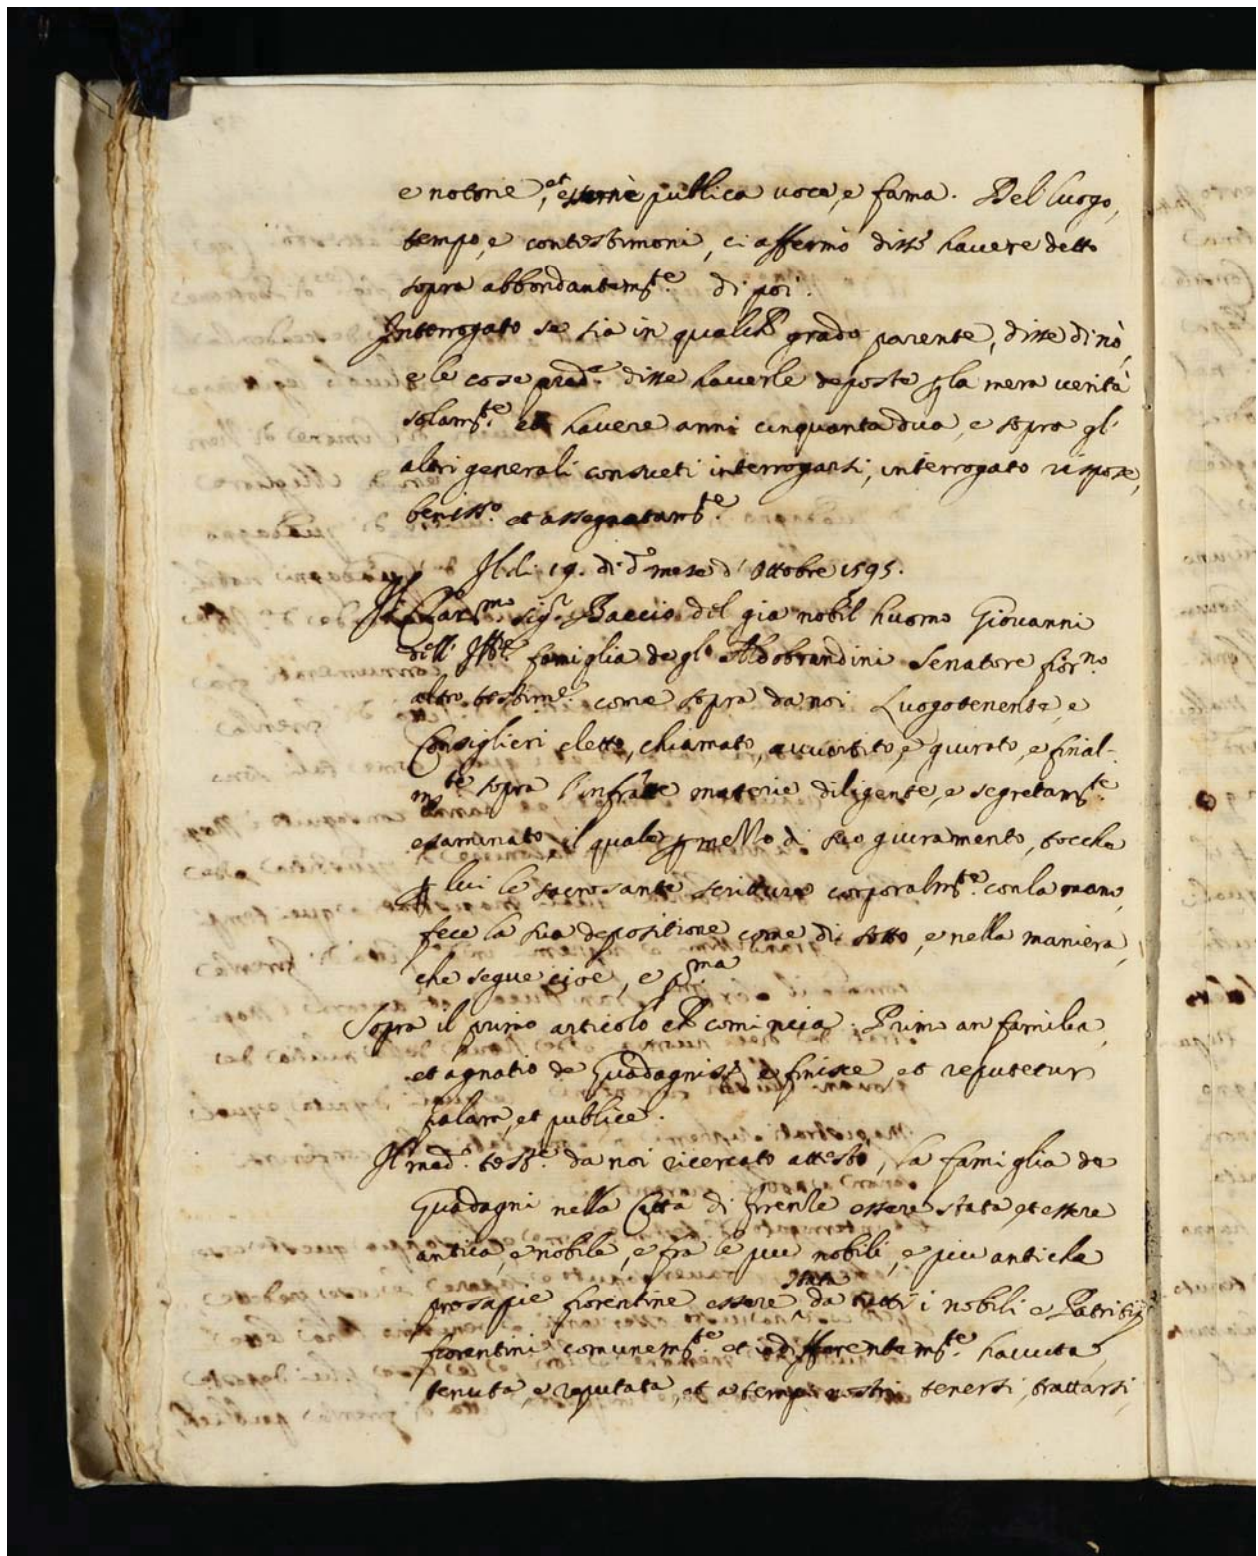 e notorie, et esserne publica voce, e fama. Del luogo,
tempo, e contestimoni, ci affermò disse havere detto
sopra abbondantemte. di poi.
Interrogato se sia in qualche grado parente, disse di nò,
e le cose pred.e disse haverle deposte p la mera verità
solamte. et havere anni cinquanta dua, e sopra gl'
altri generali consueti interrogarsi, interrogato rispose,
beniss.o et assegnatamte.
Il di 19. di d.o mese d'Ottobre 1595.
Il Clar.mo Sig.r Baccio del gia nobil huomo Giovanni
dell' Ill.e famiglia de gl' Aldobrandini Senatore fior.no
altro testim.e come sopra da noi Luogotenente, e
Consiglieri eletto, chiamato, avvertito, e giurato, e final-
mte sopra l'infratte materie diligente, e segretamte.
esaminato, il quale p mezzo di suo giuramento, tocche
p lui le sacrosante scritture corporalmte. con la mano,
fece la sua depositione come di sotto, e nella maniera,
che segue cioè, e p.ma
Sopra il primo articolo che comincia. Primo an familia,
et agnatio de Guadagnis, e finisce, et reputetur
palam, et publice.
Il mad.o test.e da noi ricercato attestò, la famiglia de
Guadagni nella Città di firenze essere stata, et essere
antica, e nobile, e frà le piu nobili, e piu antiche
prosapie fiorentine essere stata da tutti i nobili e Patritij
fiorentini comunemte. et indifferentemte. havuta,
tenuta, e reputata, et a tempi nostri tenersi, trattarsi,